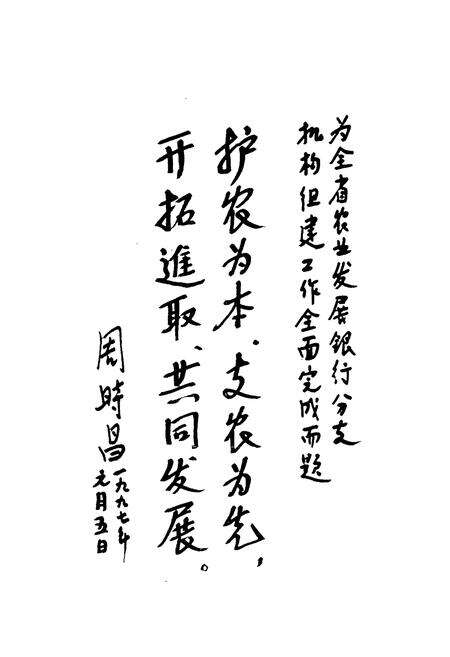 为全省农业发展银行分支
机构组建工作全面完成而题
护农为本、支农为先，
开拓進取、共同发展。
周時昌
一九九七年
元月五日